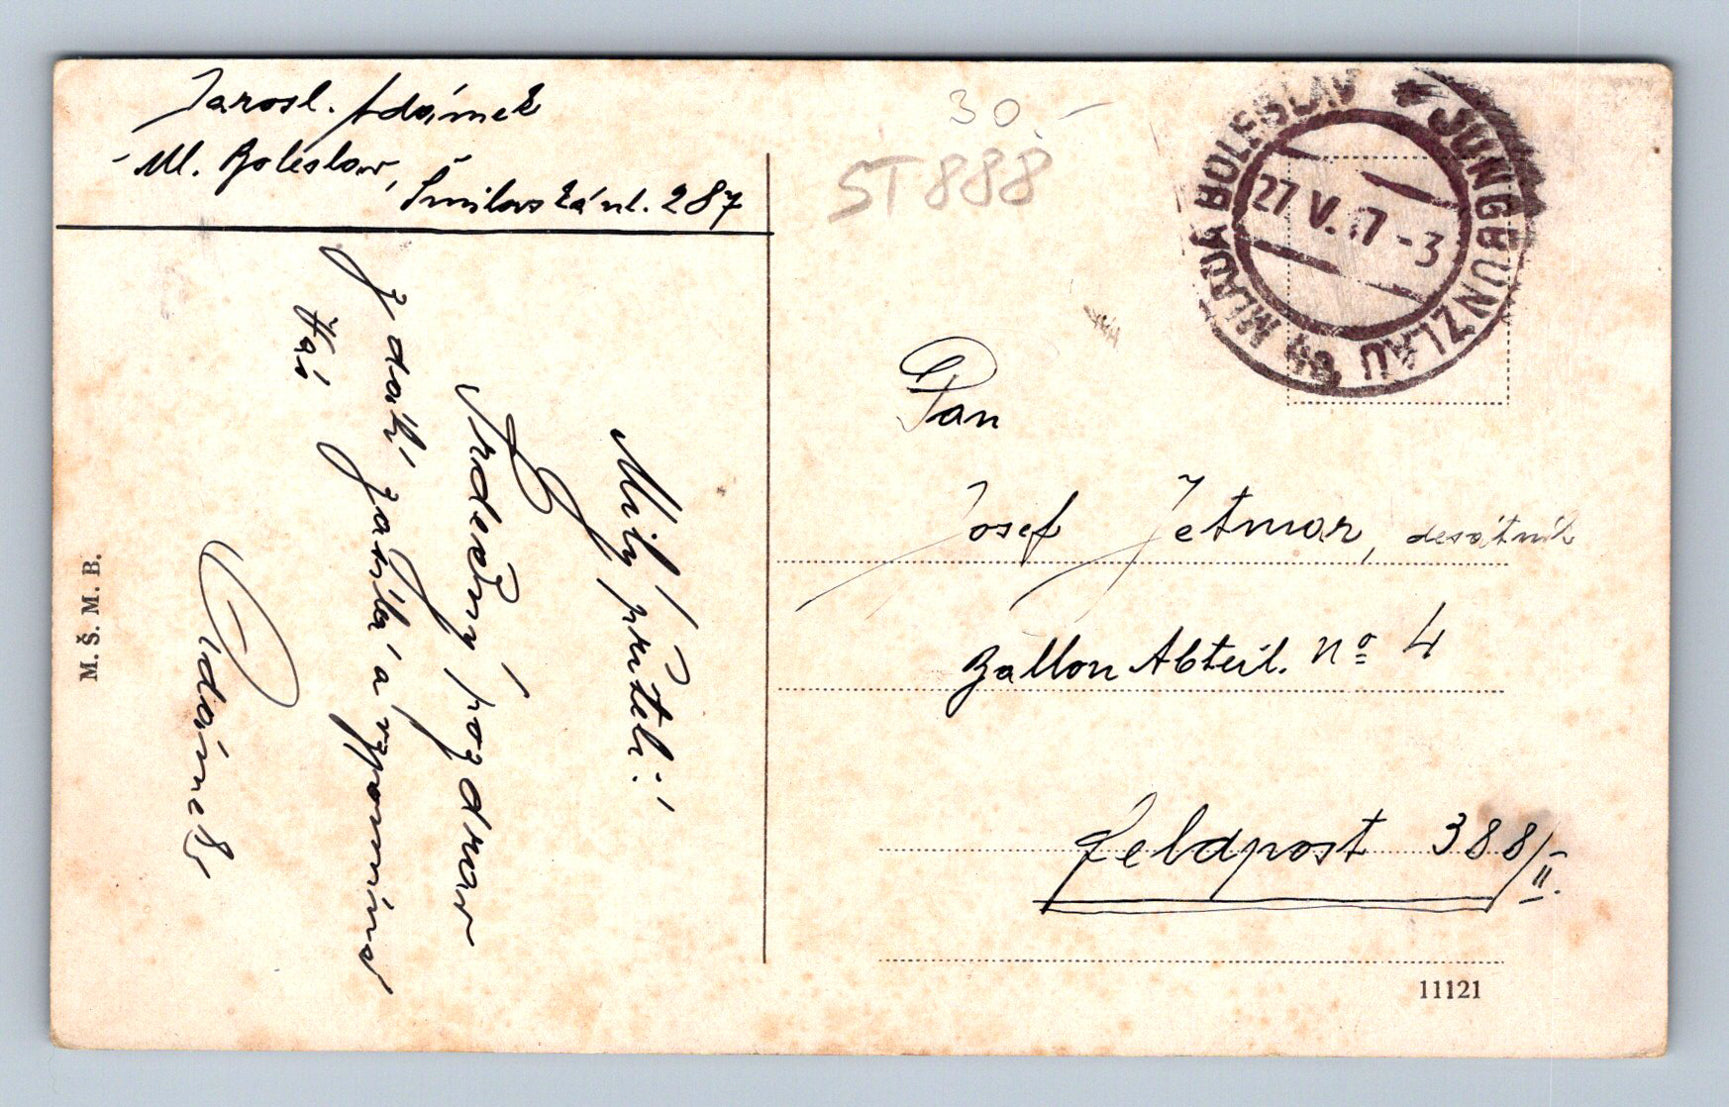 Jarosl. Adámek
Ml. Boleslav,
Šmilovská ul. 287
30.-
ST 888
MLADÁ BOLESLAV * JUNGBUNZLAU
27 V. 17 - 3
Milý příteli!
Srdečný pozdrav
z dálí zasílá a vzpomíná
Váš
Adámek
M. Š. M. B.
Pan
Josef Jetmar, desátník
Ballon Abteil. No 4
Feldpost 388/II.
11121